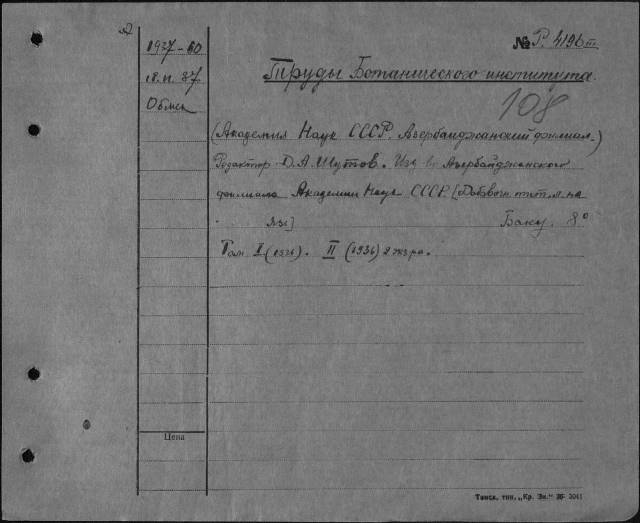 1937-60
18.II.37
Обмен
№ Р. 4196 III
Труды Ботанического института.
108
(Академия Наук СССР. Азербайджанский филиал.)
Редактор Д.А. Шутов. Изд-во Азербайджанского
филиала Академии Наук СССР. [Добавочн. тит. л. на
яз.] Баку. 8°
Том I (1936). II (1936) 2 экз.
Цена
Томск, тип. „Кр. Зн."